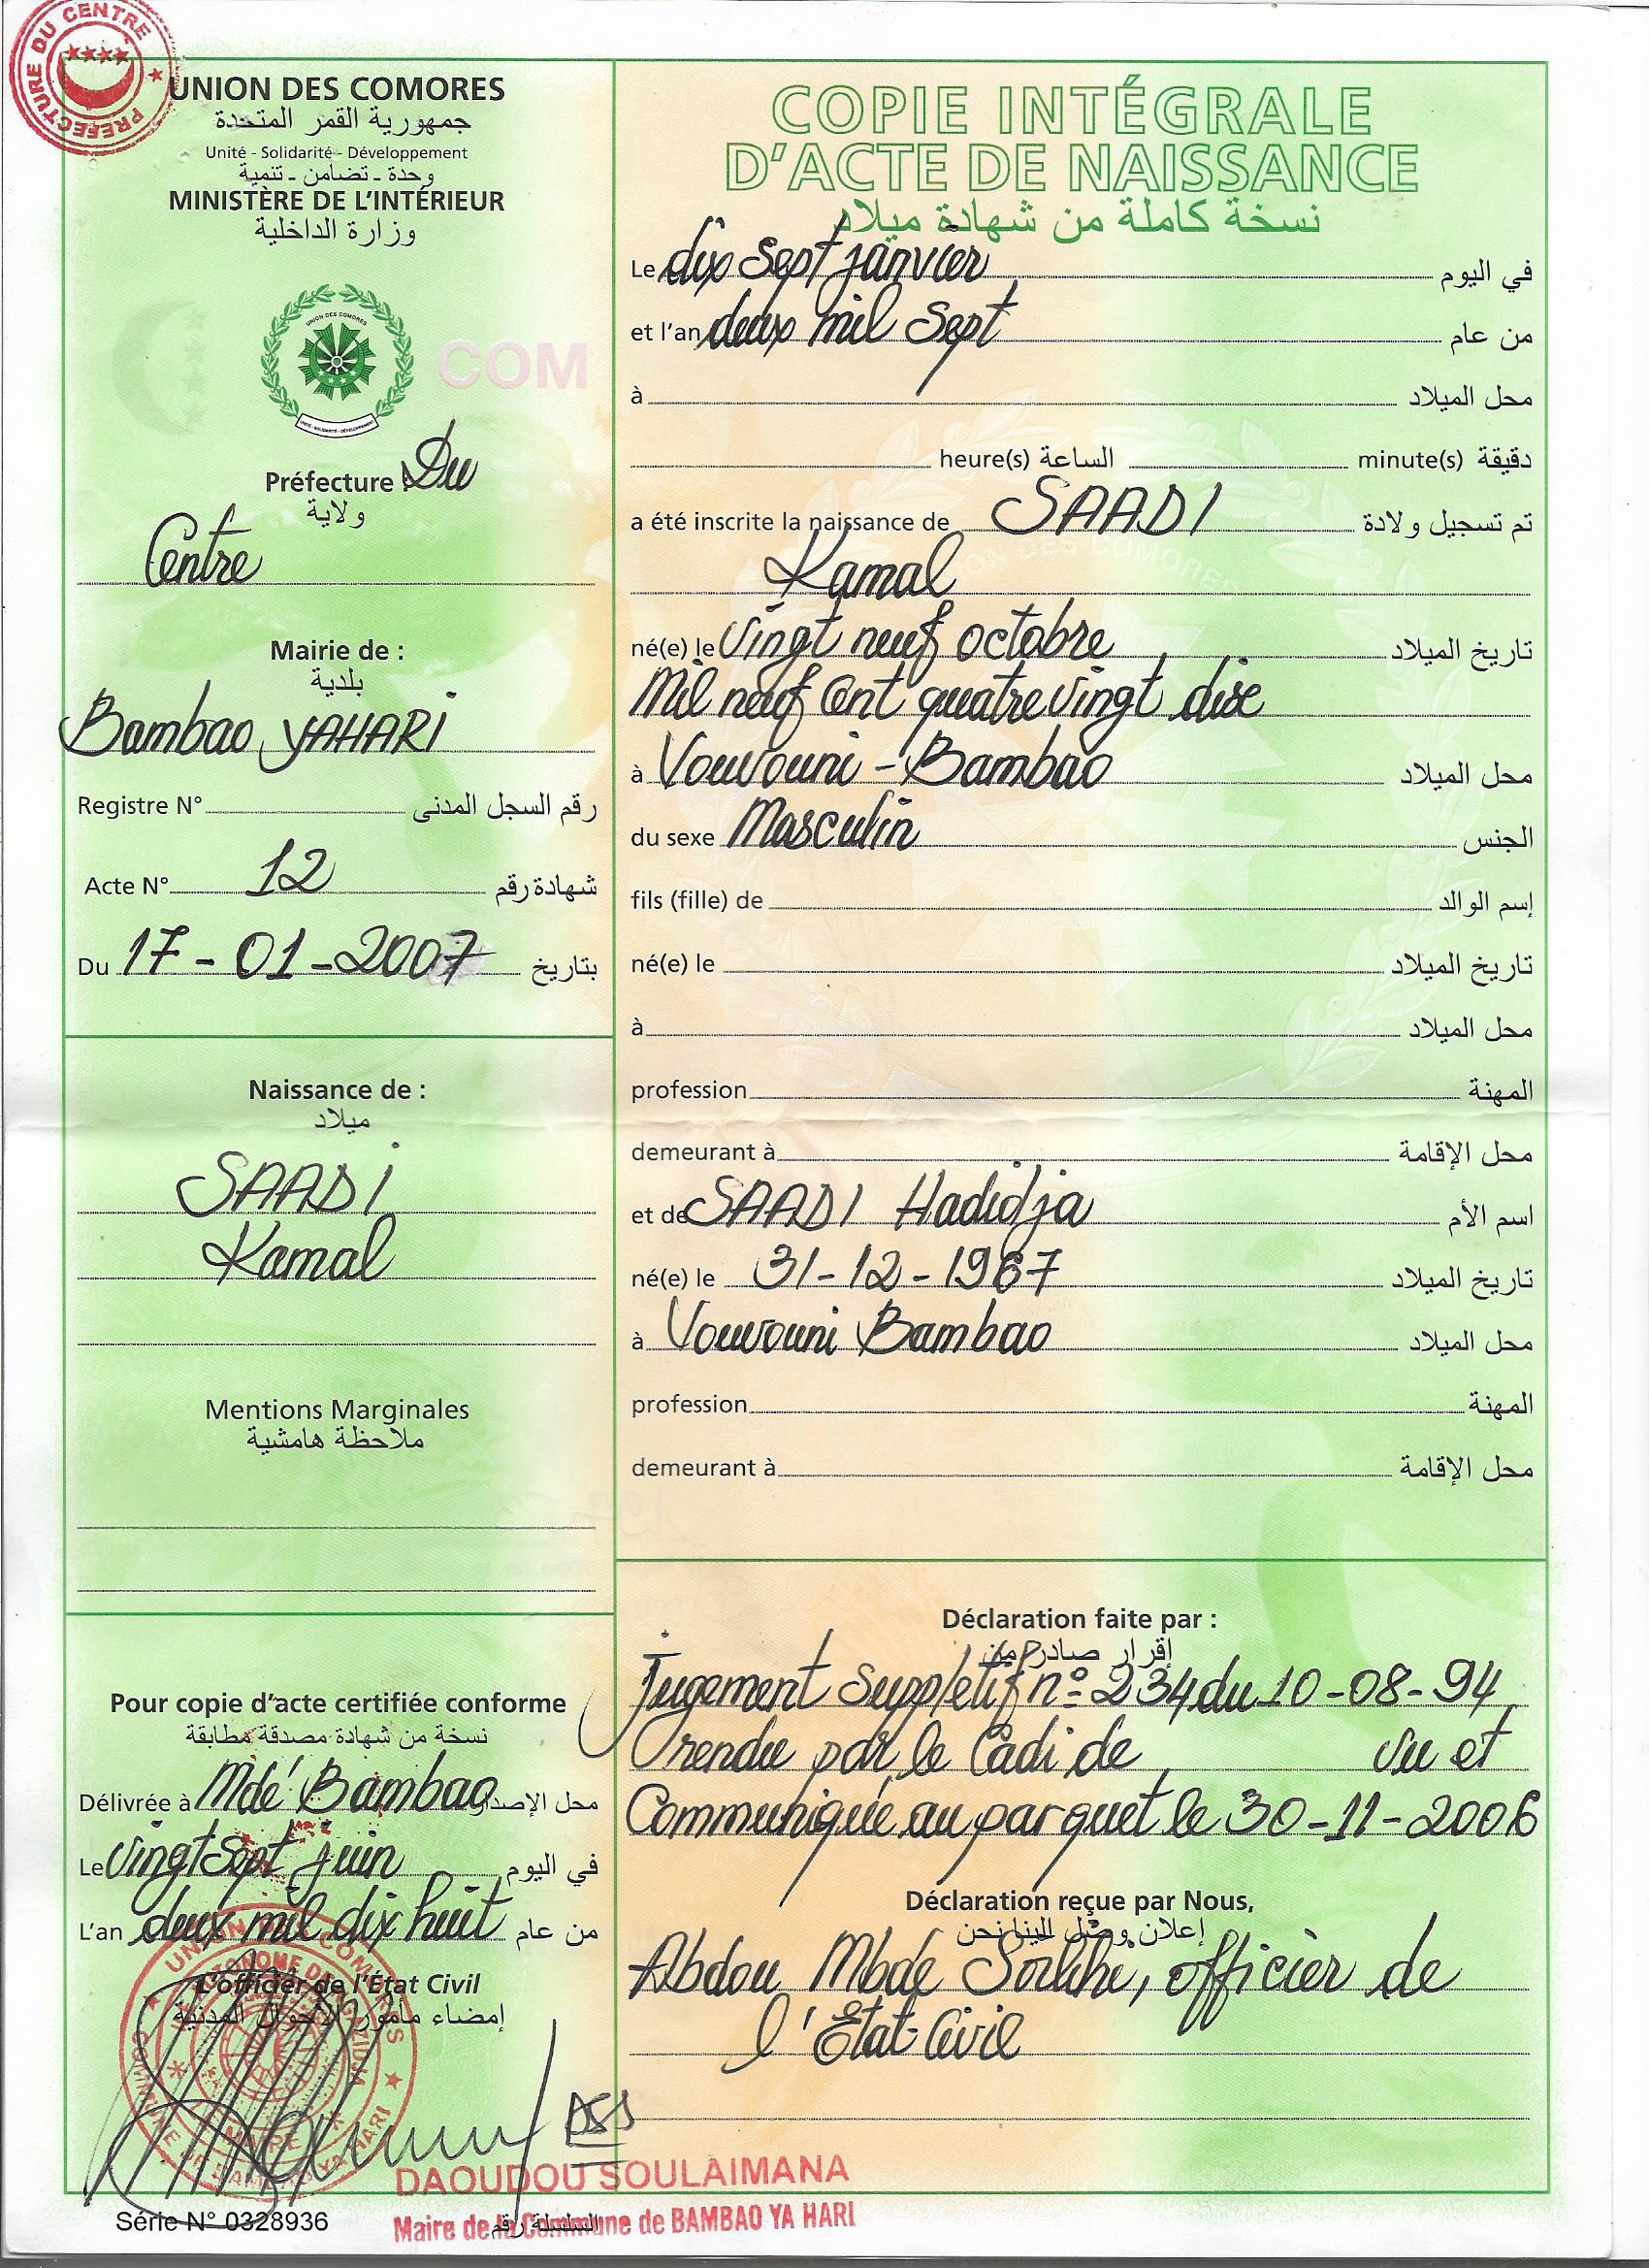 PREFECTURE DU CENTRE
UNION DES COMORES
جمهورية القمر المتحدة
Unité - Solidarité - Développement
وحدة - تضامن - تنمية
MINISTÈRE DE L'INTÉRIEUR
وزارة الداخلية
UNION DES COMORES
COM
Préfecture : Du
ولاية
Centre
Mairie de :
بلدية
Bambao YAHARI
Registre N° رقم السجل المدنى
Acte N° 12 شهادة رقم
Du 17-01-2007 بتاريخ
Naissance de :
ميلاد
SAADI
Kamal
Mentions Marginales
ملاحظة هامشية
Pour copie d'acte certifiée conforme
نسخة من شهادة مصدقة مطابقة
Délivrée à Mdé Bambao محل الإصدار
Le Vingt Sept juin في اليوم
L'an deux mil dix huit من عام
L'officier de l'État Civil
إمضاء مأمور الأحوال المدنية
DAOUDOU SOULAIMANA
Maire de la Commune de BAMBAO YA HARI
Série N° 0328936 السلسلة رقم
COPIE INTÉGRALE
D'ACTE DE NAISSANCE
نسخة كاملة من شهادة ميلاد
Le dix Sept janvier في اليوم
et l'an deux mil Sept من عام
à محل الميلاد
heure(s) الساعة minute(s) دقيقة
a été inscrite la naissance de SAADI تم تسجيل ولادة
Kamal
né(e) le Vingt neuf octobre تاريخ الميلاد
Mil neuf Cent quatre vingt dix
à Vouvouni - Bambao محل الميلاد
du sexe Masculin الجنس
fils (fille) de إسم الوالد
né(e) le تاريخ الميلاد
à محل الميلاد
profession المهنة
demeurant à محل الإقامة
et de SAADI Hadidja اسم الأم
né(e) le 31-12-1967 تاريخ الميلاد
à Vouvouni Bambao محل الميلاد
profession المهنة
demeurant à محل الإقامة
Déclaration faite par :
إقرار صادر من
Jugement Supplétif n° 234 du 10-08-94
rendu par le Cadi de vu et
Communiqué au parquet le 30-11-2006
Déclaration reçue par Nous,
إعلان وصل الينا نحن
Abdou Mbdé Soilihi, officier de
l'Etat Civil